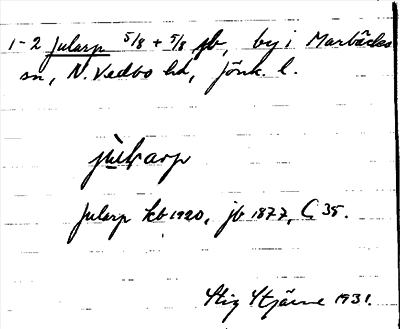 1-2 Jularp 5/8 + 5/8 jb, by i Marbäcks
sn, N. Vedbo hd, Jönk. l.
jularp
Jularp kb 1920, jb 1877, C 35.
Stig Stjärne 1931.